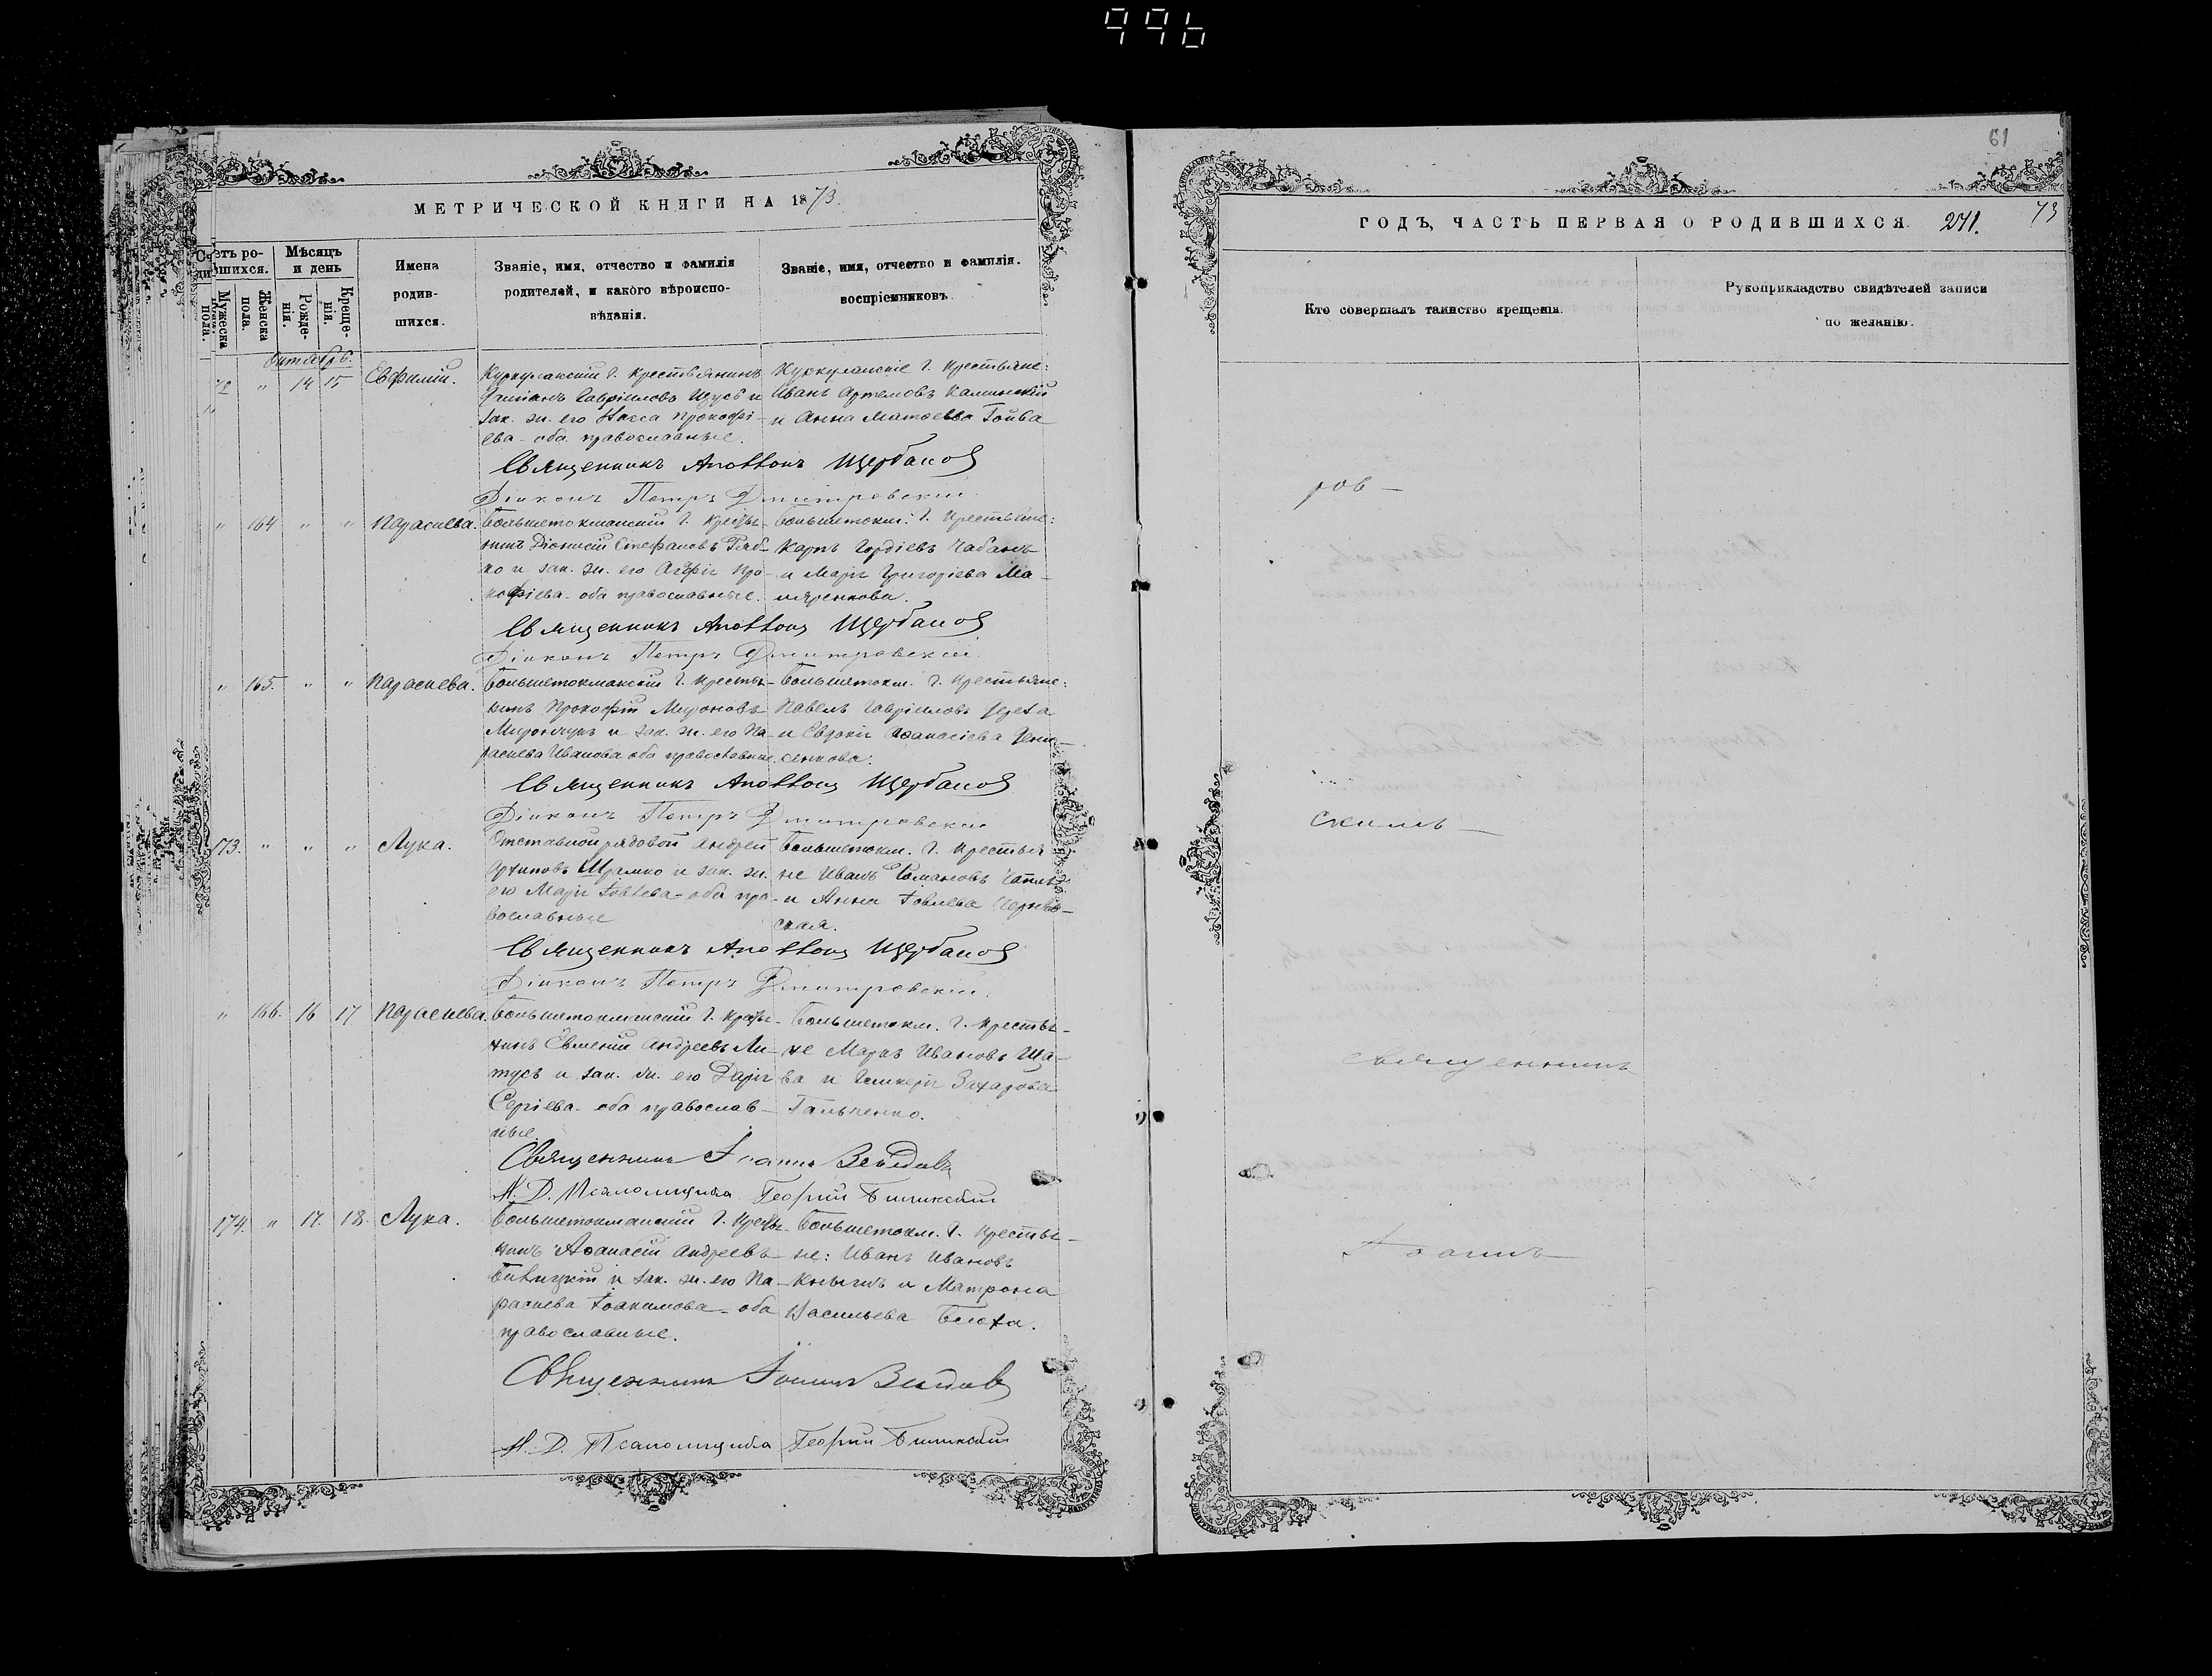 996
МЕТРИЧЕСКОЙ КНИГИ НА 1873.
Счетъ ро-
дившихся.
Мужеска пола.
Женска пола.
Мѣсяцъ и день
Рожде-
нія.
Креще-
нія.
Имена
родив-
шихся.
Званіе, имя, отчество и фамилія
родителей, и какого вѣроиспо-
вѣданія.
Званіе, имя, отчество и фамилія.
воспріемниковъ.
Октябрь.
72 " 14 15 Евфимій.
Куркулакскій Г. Крестьянинъ
Гавріиловъ Щусь и
зак. ж. его Прокофі-
ева - оба православные.
Куркулакскіе Г. Крестьяне:
Иванъ Артемовъ Калинскій
и Анна Матѳеева Гойва
Священникъ Аполлонъ Щербаков
Діаконъ Петръ Дмитровскій
" 164 " " Параскева.
Большетокмакскій Г. Кресть-
нинъ Діонисій Стефановъ Ряб-
ко и зак. ж. его Про-
кофіева - оба православные.
Большетокм. Г. Крестьяне:
Карпъ Гордіевъ Чабанъ
и Марія Григоріева Ма-
Священникъ Аполлонъ Щербаков
Діаконъ Петръ Дмитровскій
" 165. " " Параскева.
Большетокмакскій Г. Кресть-
нинъ Прокофій Мироновъ
Мирончукъ и зак. ж. его Па-
раскева Иванова оба православные.
Большетокм. Г. Крестьяне:
Павелъ Гавріиловъ
и Евдокія Аѳанасіева Дени-
сенкова.
Священникъ Аполлонъ Щербаков
Діаконъ Петръ Дмитровскій
173. " " " Лука.
Отставной рядовой Андрей
Архиповъ Шрамко и зак. ж.
его Марія - оба пра-
вославные
Большетокм. Г. Крестья
не Иванъ Романовъ
и Анна Іовлева
ская.
Священникъ Аполлонъ Щербаков
Діаконъ Петръ Дмитровскій
" 166. 16 17 Параскева.
Большетокмакскій Г. Кресть-
нинъ Евменій Андреевъ Ли-
тусъ и зак. ж. его Дарія
Сергіева - оба православ-
ные.
Большетокм. Г. Кресть-
не Маркъ Ивановъ Ша-
ва и Гликерія Захарова
Гальченко.
Священникъ Іоаннъ
И. Д. Псаломщика Георгій
174. " 17. 18. Лука.
Большетокмакскій Г. Кресть-
нинъ Аѳанасій Андреевъ
Билицкій и зак. ж. его Па-
раскева Іоакимова - оба
православные.
Большетокм. Г. Кресть-
не: Иванъ Ивановъ
и Матрона
Васильева Блоха.
Священникъ Іоаннъ
И. Д. Псаломщика Георгій
61
ГОДЪ, ЧАСТЬ ПЕРВАЯ О РОДИВШИХСЯ. 271. 73
Кто совершалъ таинство крещенія.
Рукоприкладство свидѣтелей записи
по желанію.
ров —
скимъ —
священникъ
Іоаннъ